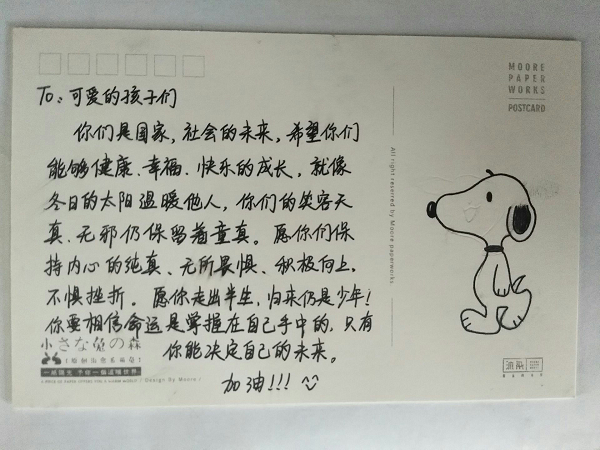 MOORE
PAPER
WORKS
POSTCARD
To：可爱的孩子们
你们是国家，社会的未来，希望你们
能够健康、幸福、快乐的成长，就像
冬日的太阳温暖他人，你们的笑容天
真、无邪仍保留着童真。愿你们保
持内心的纯真、无所畏惧、积极向上，
不惧挫折。愿你走出半生，归来仍是少年！
你要相信命运是掌握在自己手中的，只有
你能决定自己的未来。
加油!!!
小さな兔の森
/ Design By Moore /
All right reserved by Moore paperworks.